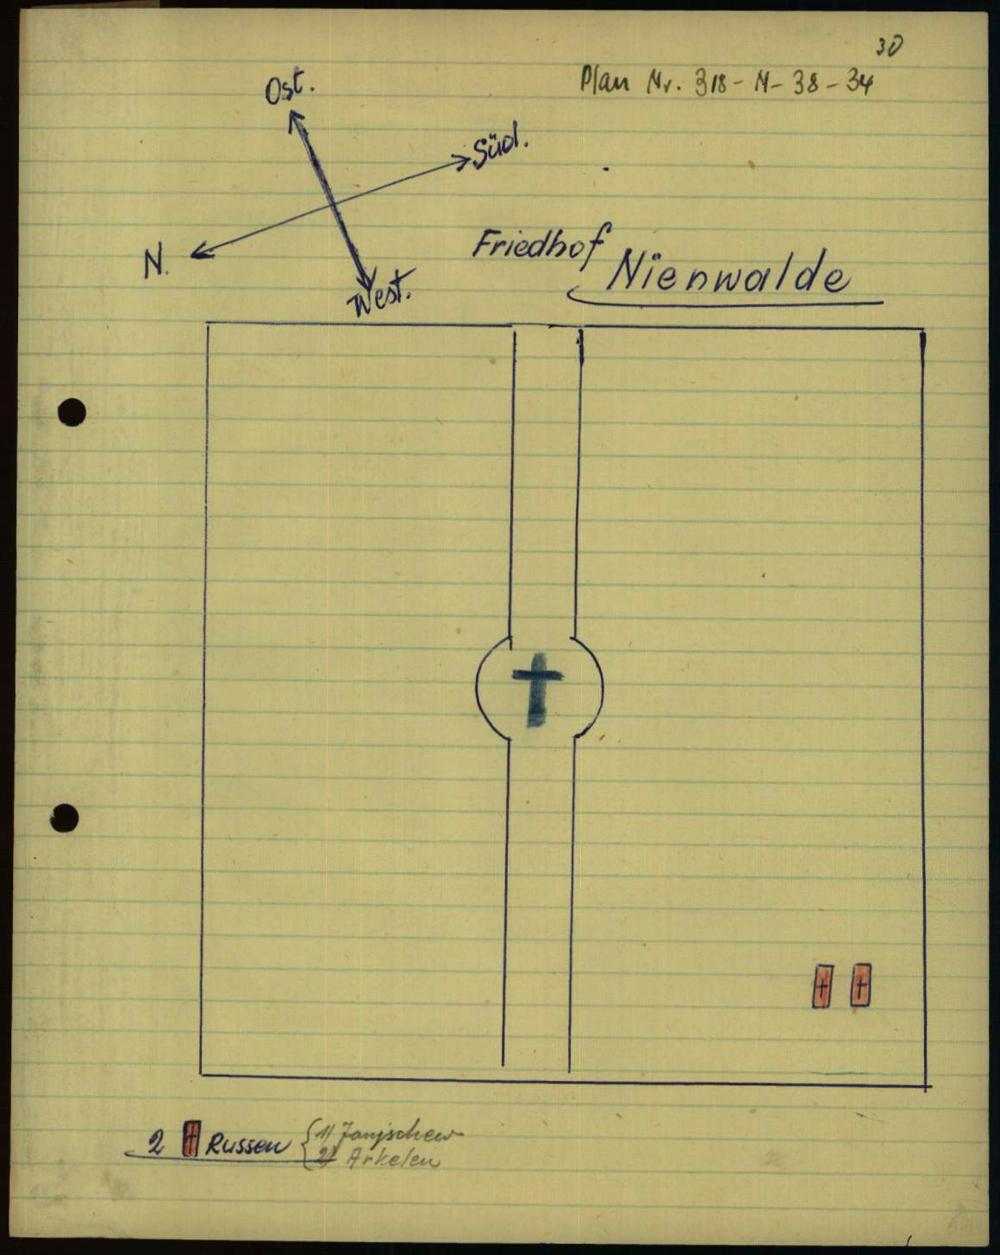 30
Plan Nr. 318-N-38-34
Ost.
Süd.
N.
West.
Friedhof Nienwalde
2 Russen
1)
2) Arkelen